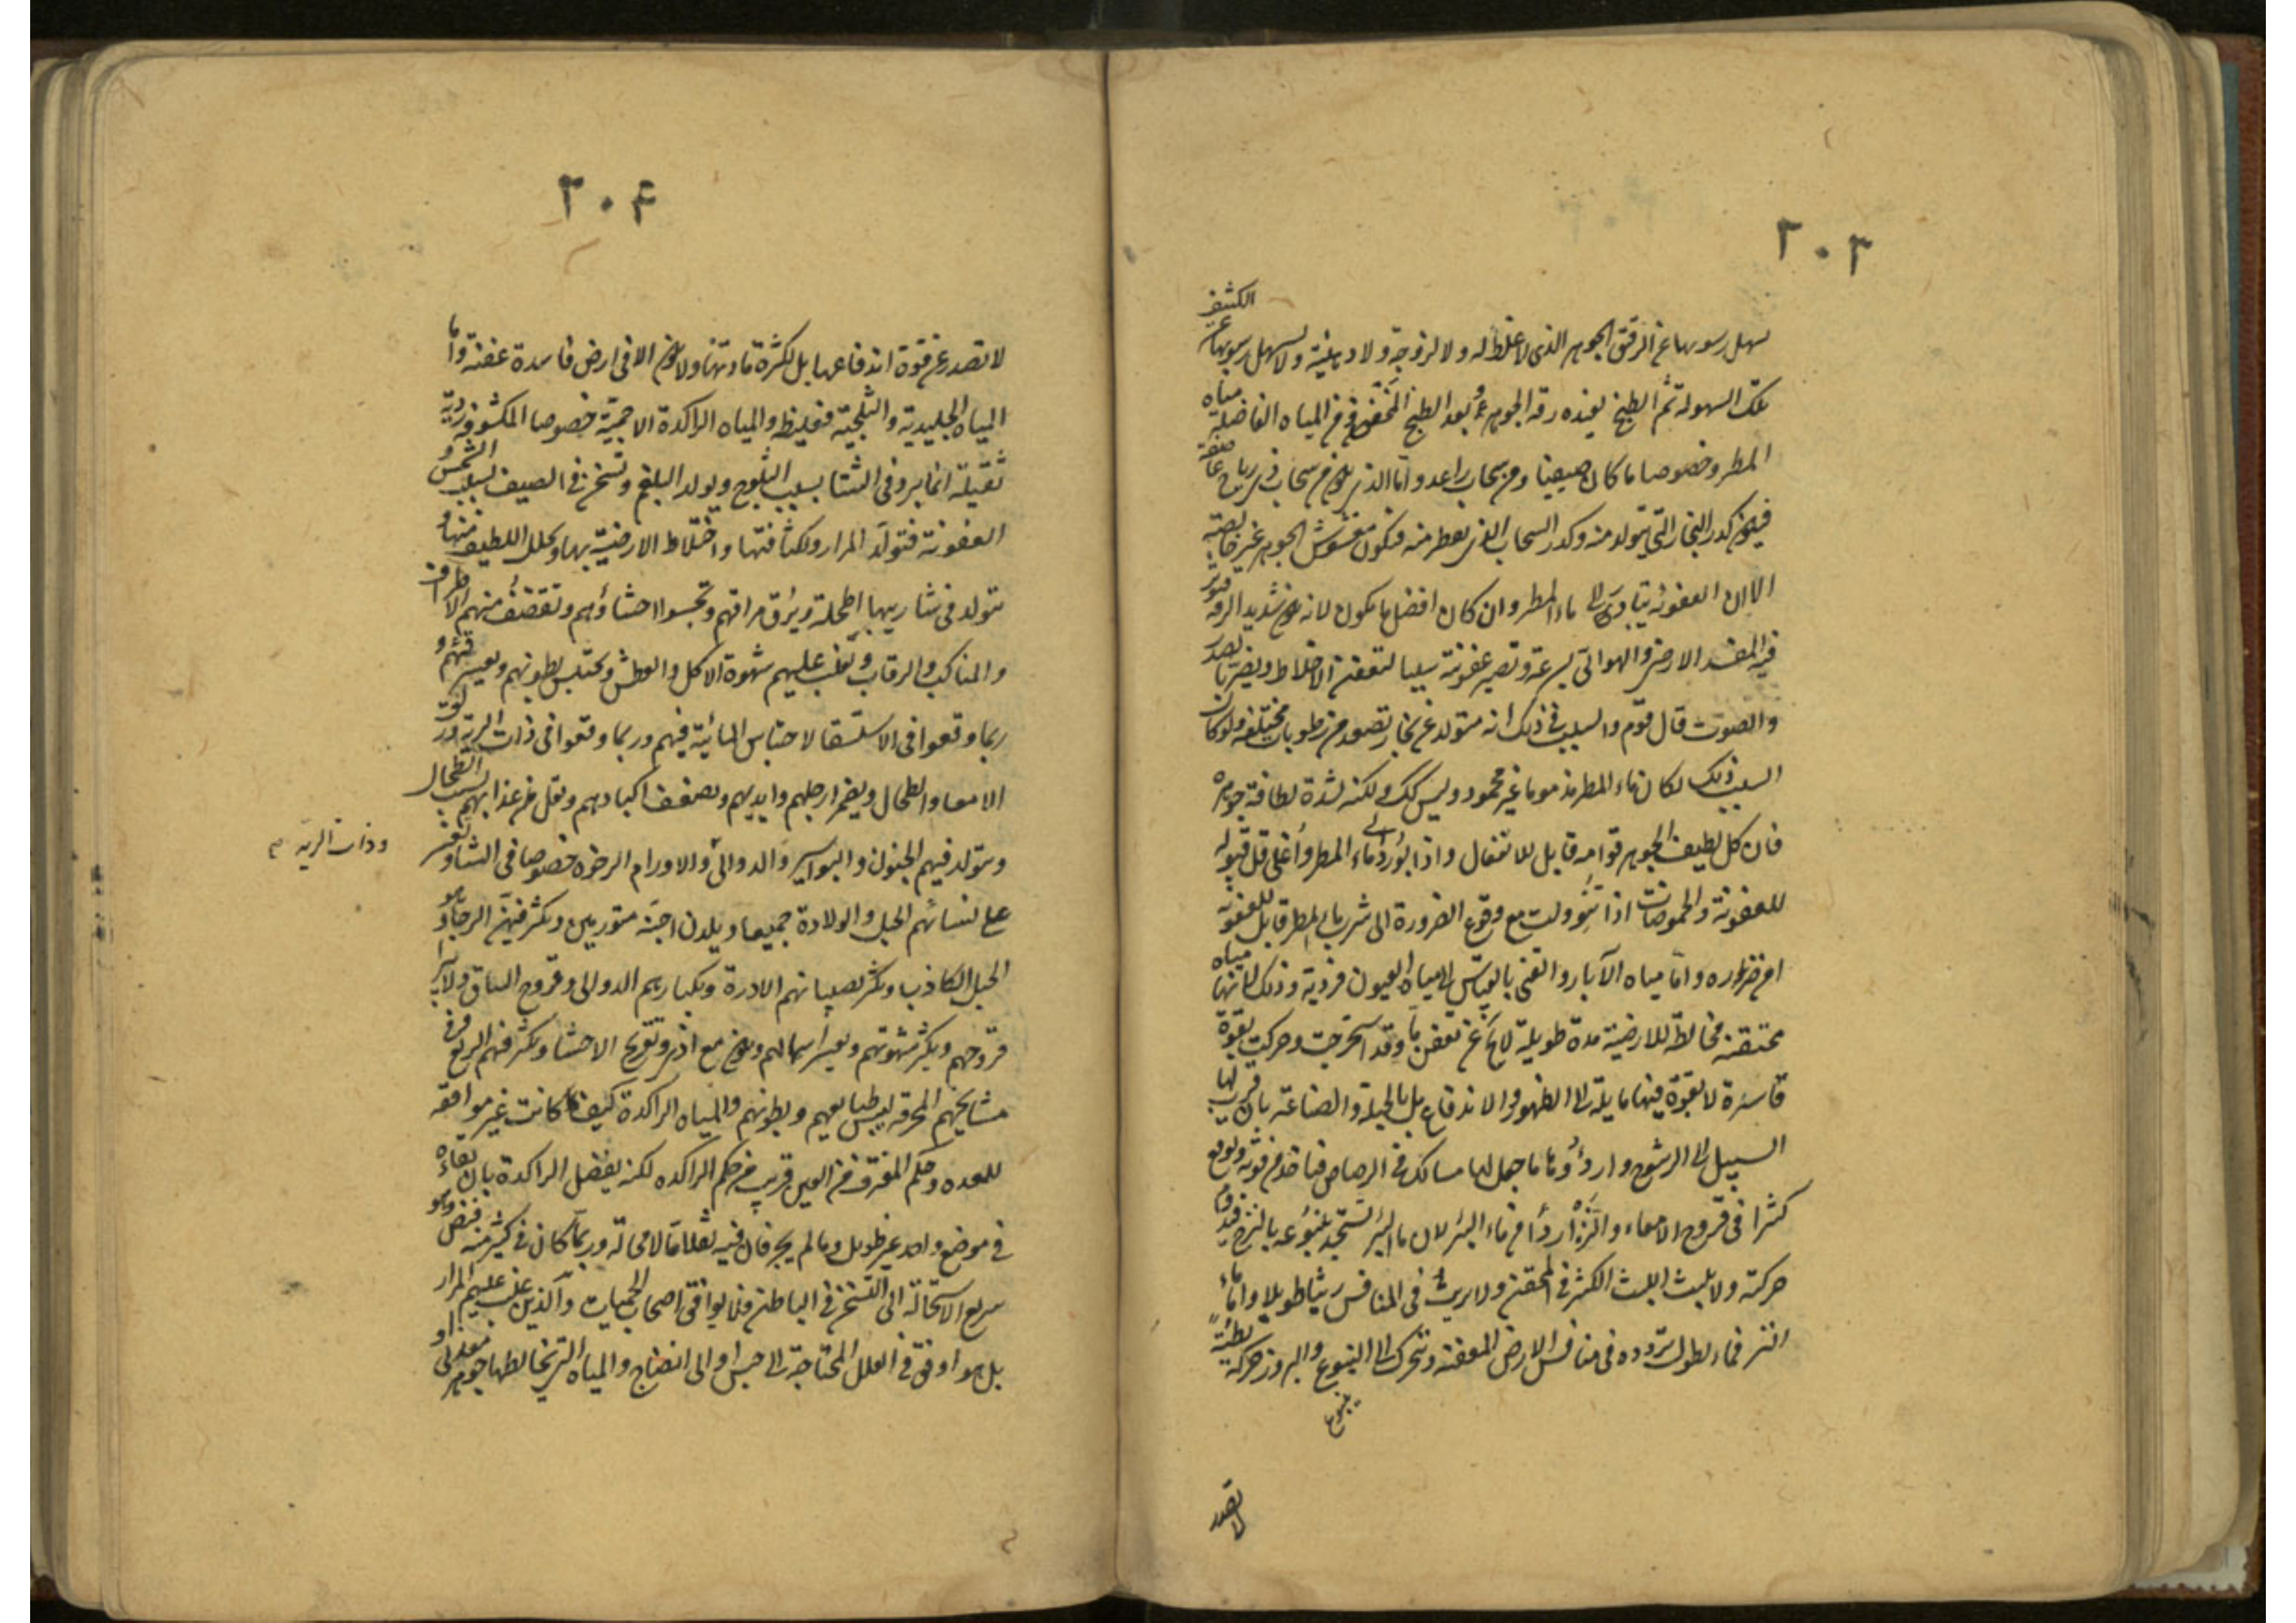 ٢٠٣
الكثيف
يسهل رسوبها عن الرقيق الجوهر الذي لا غلظ له ولا لزوجة ولا دهنية ولا يسهل رسوبها عن
تلك السهولة ثم الطبخ يفيده رقة الجوهر وبعد الطبخ المخض ومن المياه الفاضلة مياه
المطر وخصوصا ما كان صيفيا ومن سحاب راعد واما الذي يكون من سحاب ذي رياح عاصفة
فيكون كدر البخار الذي يتولد منه وكدر السحاب الذي يقطر منه فيكون مغشوش الجوهر غير خالصه
الا ان العفونة تبادر الى ماء المطر وان كان افضل ما يكون لانه شديد الرقة فيؤثر
فيه المفسد الارضي والهوائي بسرعة وتصير عفونته سببا لتعفن الاخلاط ويضر بالصدر
والصوت قال قوم والسبب في ذلك انه متولد عن بخار تصعد من رطوبات مختلفة ولو كان
السبب ذلك لكان ماء المطر مذموما غير محمود وليس كك ولكنه لشدة لطافة جوهره
فان كل لطيف الجوهر قوامه قابل للانفعال واذا بودر الى ماء المطر وأغلي قل قبوله
للعفونة والحموضات اذا تنوولت مع وقوع الضرورة الى شرب ماء المطر قابل للعفونة
امن ضرره واما مياه الآبار والقني بالقياس الى مياه العيون فردية وذلك لانها مياه
محتقنة مخالطة للارضية مدة طويلة لا تخ عن تعفن ما وقد استخرجت وحركت بقوة
قاسرة لا بقوة فيها مايلة الى الظهور والاندفاع بل بالحيلة والصناعة بان قرب لها
السبيل الى الرشوح واردؤها ما جعل لها مسالك في الرصاص فتاخذ من قوته وتوقع
كثيرا في قروح الامعاء والنز اردأ من ماء البئر لان ماء البئر تستجد ينبوعه بالنزح فتدوم
حركته ولا يلبث اللبث الكثير في المحقن ولا يريث في المنافس ريثا طويلا واما ماء
النز فماء يطول تردده في منافس الارض المعفنة ويتحرك الى النبوع والبروز حركة بطيئة
ينبوع
لا تصدر
٢٠۴
لا تصدر عن قوة اندفاعها بل لكثرة مادتها ولا يكون الا في ارض فاسدة عفنة واما
المياه الجليدية والثلجية فغليظة والمياه الراكدة الاجمية خصوصا المكشوفة ردية
ثقيلة انما يبرد في الشتا بسبب الثلوج ويولد البلغم وتسخن في الصيف بسبب الشمس و
العفونة فتولد المرار ولكثافتها واختلاط الارضية بها وتحلل اللطيف منها
تتولد في شاربيها اطحلة ويرق مراقهم وتجسو احشاؤهم وتقضف منهم الاطراف
والمناكب والرقاب ويغلب عليهم شهوة الاكل والعطش وتحتبس بطونهم ويعسر قيئهم و
ربما وقعوا في الاستسقا لاحتباس المائية فيهم وربما وقعوا في ذات الرية وزلق
الامعا والطحال ويضمر ارجلهم وايديهم وتضعف اكبادهم وتقل من غذايهم بسبب الطحال
ويتولد فيهم الجنون والبواسير والدوالي والاورام الرخوة خصوصا في الشتا ويعسر
وذات الريه
على نسائهم الحبل والولادة جميعا ويلدن اجنة متورمين ويكثر فيهن الرجا وهو
الحبل الكاذب ويكثر لصبيانهم الادرة وبكبارهم الدوالي وقروح الساق ولا تبرأ
قروحهم ويكثر شهوتهم ويعسر اسهالهم ويكون مع اذى وتقرح الاحشا ويكثر فيهم الربع وفي
مشايخهم المحرقة ليبس طبايعهم وبطونهم والمياه الراكدة كيف ما كانت غير موافقة
للمعدة وحكم المغترف من العين قريب من حكم الراكدة لكنه يفضل الراكدة بان بقاءه
في موضع واحد غير طويل وما لم يجر فان فيه ثقلا ما لا محالة وربما كان في كثير منه قبض وهو
سريع الاستحالة الى التسخن في الباطن فلا يوافق اصحاب الحميات والذين غلب عليهم المرار
بل هو اوفق في العلل المحتاجة الى حبس او الى انضاج والمياه التي يخالطها جوهر معدني او